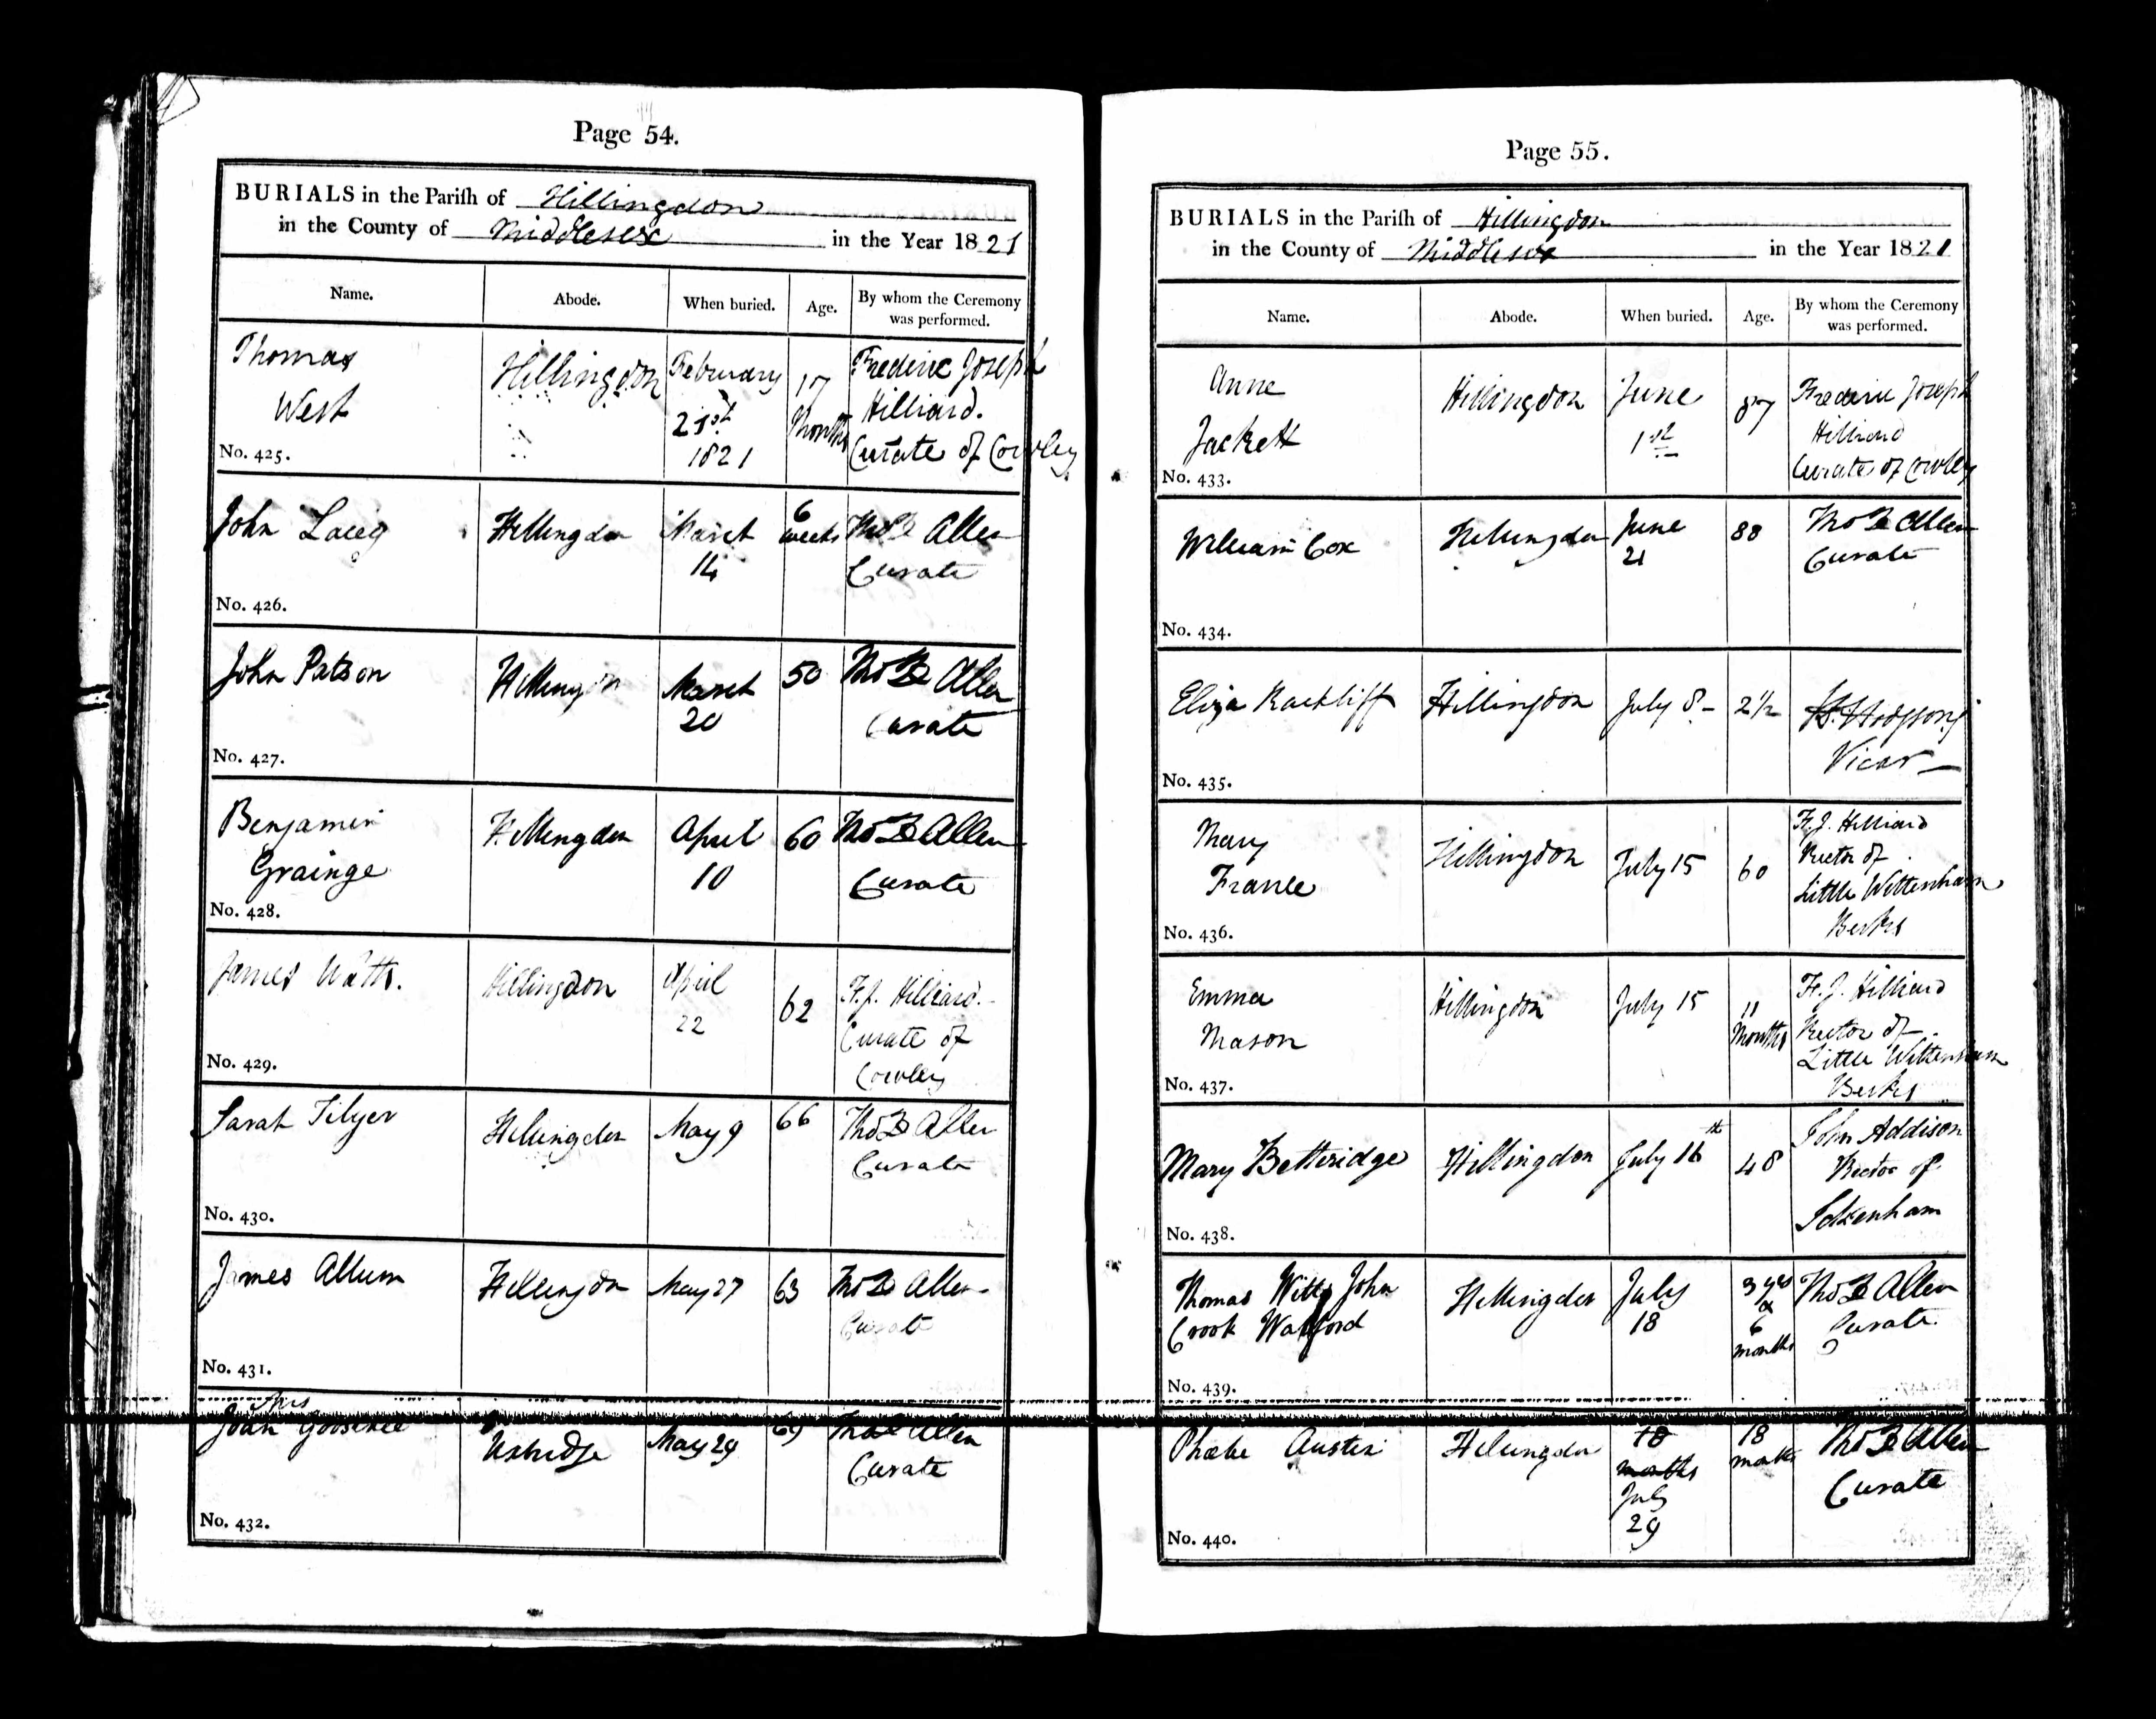 Page 54.
BURIALS in the Pariſh of Hillingdon
in the County of Middlesex in the Year 1821
Name. Abode. When buried. Age. By whom the Ceremony was performed.
Thomas West Hillingdon February 21st 1821 17 Months Frederic Joseph Hilliard. Curate of Cowley
No. 425.
John Hillingdon March 14 6 weeks Thos Allen Curate
No. 426.
John Patson Hillingdon March 20 50 Thos Allen Curate
No. 427.
Benjamin Grainge Hillingdon April 10 60 Thos Allen Curate
No. 428.
James Watts. Hillingdon April 22 62 F. J. Hilliard. Curate of Cowley
No. 429.
Sarah Tilyer Hillingdon May 9 66 Thos Allen Curate
No. 430.
James Allum Hillingdon May 27 63 Thos Allen Curate
No. 431.
Uxbridge May 29 69 Thos Allen Curate
No. 432.
Page 55.
BURIALS in the Pariſh of Hillingdon
in the County of Middlesex in the Year 1821
Name. Abode. When buried. Age. By whom the Ceremony was performed.
Anne Jackett Hillingdon June 1st 87 Frederic Joseph Hilliard Curate of Cowley
No. 433.
William Cox Hillingdon June 21 88 Thos Allen Curate
No. 434.
Eliza Rackliff Hillingdon July 8 2 1/2 Hodgson Vicar
No. 435.
Mary France Hillingdon July 15 60 F. J. Hilliard Rector of Little Wittenham Berks
No. 436.
Emma Mason Hillingdon July 15 11 Months F. J. Hilliard Rector of Little Wittenham Berks
No. 437.
Mary Betteridge Hillingdon July 16th 48 John Addison Rector of Ickenham
No. 438.
Thomas Witts John Crook Watford Hillingdon July 18 3 yrs & 6 months Thos Allen Curate
No. 439.
Phœbe Austin Hillingdon 18 months July 29 18 months Thos Allen Curate
No. 440.